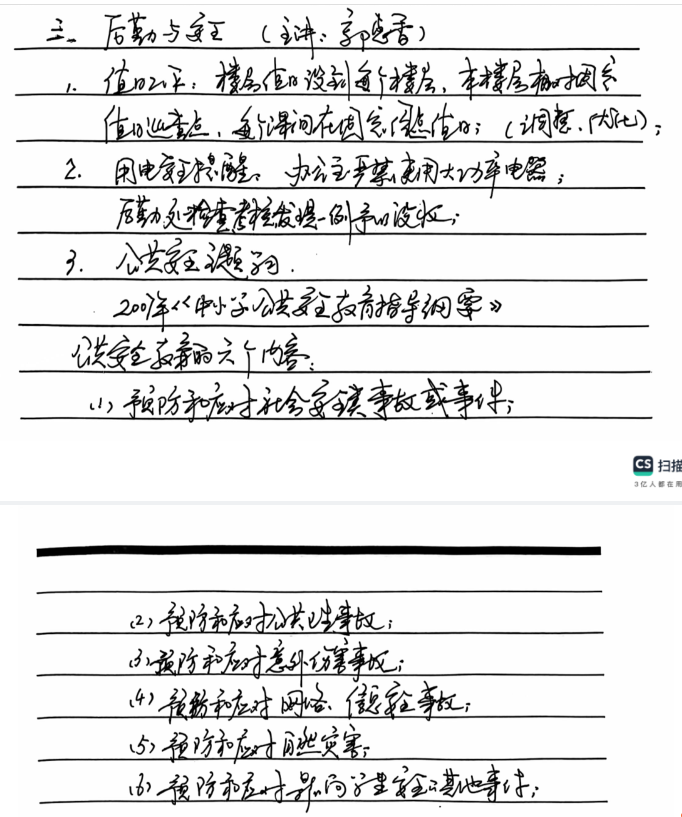 三、后勤与安全 (主讲:郭惠香)
1. 值日工作:楼层值日设到每个楼层,本楼层相对固定
值日巡查点,每个课间在固定位点值日;(调整、优化);
2. 用电安全提醒。办公室严禁使用大功率电器;
后勤处检查考核发现一例予以没收;
3. 公共安全主题词.
2007年《中小学公共安全教育指导纲要》
公共安全教育的六个内容:
(1) 预防和应对社会安全类事故或事件;
CS 扫描
3亿人都在用
(2) 预防和应对公共卫生事故;
(3) 预防和应对意外伤害事故;
(4) 预防和应对网络、信息安全事故;
(5) 预防和应对自然灾害;
(6) 预防和应对影响学生安全的其他事件;